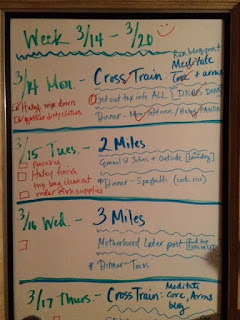 Week 3/14 - 3/20
Run blog post
Meditate
3/14 Mon. - Cross Train
Core + arms
Haley mop down
Get out tap info ALL
gather dirty clothes
Dinner -
3/15 Tues. - 2 Miles
pancakes
Haley finish
+ Outside
Laundry
trip bag clean out
Dinner - Spaghetti
order supplies
3/16 Wed. - 3 Miles
Motherhood Later post
Dinner - Tacos
Meditate
3/17 Thurs. - Cross Train: Core, Arms
blog